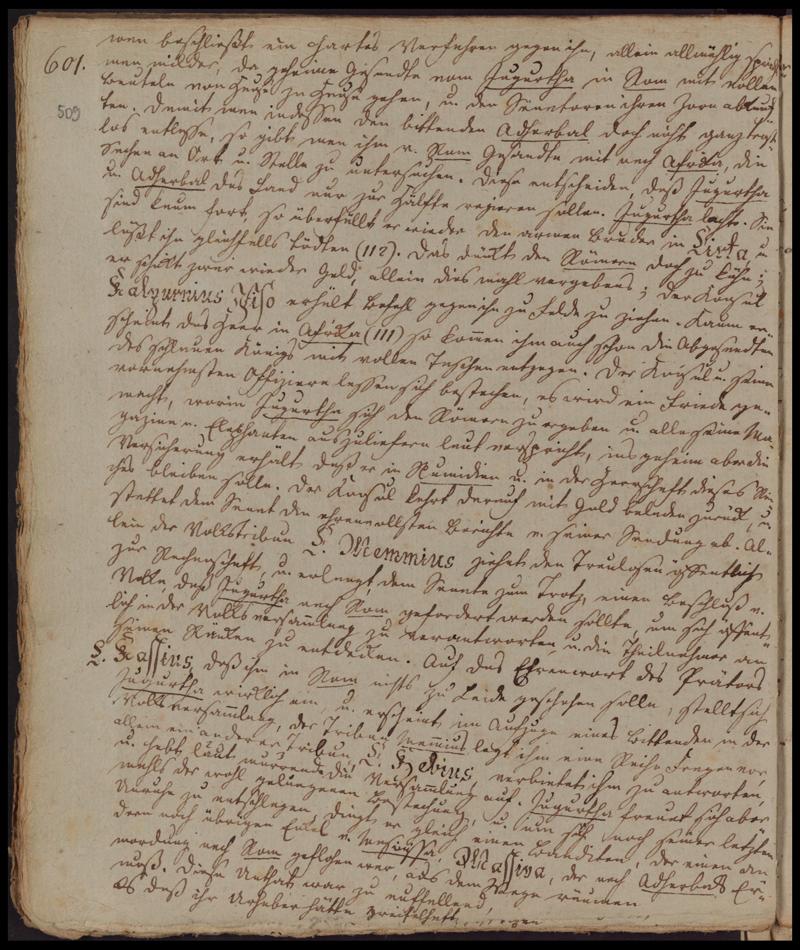 601.
509
man beschließt ein hartes Verfahren gegen ihn, allein allmählig spricht
man milder, da geheime Gesandte vom Jugurtha in Rom mit vollen
Beuteln von Haus zu Haus gehen, u. den Senatoren ihren Zorn abkauf-
ten. Damit man indessen den bittenden Adherbal doch nicht ganz trost-
los entlasse, so gibt man ihm v. Rom Gesandte mit nach Africa, die
Sachen an Ort u. Stelle zu untersuchen. Diese entscheiden, daß Jugurtha
u. Adherbal das Land nur zur Hälfte regieren sollen. Jugurtha lacht. Sie
sind kaum fort, so überfällt er wieder den armen Bruder in Cirta, u
läßt ihn gleichfalls tödten (112). Das däucht den Römern doch zu kühn;
er schickt zwar wieder Geld, allein dies mahl vergebens; der Konsul
Kalpurnius Piso erhält Befehl gegen ihn zu Felde zu ziehen. Kaum er-
scheint das Heer in Africa (111) so komen ihm auch schon die Abgesandten
des schlauen Königs mit vollen Taschen entgegen. Der Konsul u. seine
vornehmsten Offiziere lassen sich bestechen, es wird ein Friede ge-
macht, worin Jugurtha sich den Römern zu ergeben u. alle seine Ma-
gazine u. Elephanten auszuliefern laut verspricht, insgeheim aber die
Versicherung erhält daß er in Numidien u. in der Herrschaft dieses Rei-
ches bleiben solle. Der Konsul kehrt darauf mit Gold beladen zurück, u.
stattet dem Senat den ehrenvollsten Bericht v. seiner Sendung ab. Al-
lein der Volkstribun C. Memmius ziehet den Treulosen öffentlich
zur Rechenschaft, u. erlangt, dem Senate zum Trotz, einen Beschluß v.
Volke, daß Jugurtha nach Rom gefordert werden sollte, um sich öffent-
lich in der Volksversamlung zu verantworten u. die Theilnehmer an
seinen Ränken zu entdecken. Auf das Ehrenwort des Prätors
L. Kassius, daß ihm in Rom nichts zu Leide geschehen solle, stellt sich
Jugurtha wirklich ein, u. erscheint im Aufzuge eines Bittenden in der
Volksversamlung, der Tribun Memmius legt ihm eine Reihe Fragen vor,
allein ein anderer Tribun, C. Bebius, verbietet ihm zu antworten,
u. hebt laut murrende die Versamlung auf. Jugurtha freuet sich aber
mahls der wohl gelungenen Bestechung, u. um sich noch seiner letzten
Unruhe zu entschlagen, dingt er gleich einen Banditen, der einen an
dern noch übrigen Enkel v. Masinissa, Massiva, der nach Adherbals Er-
mordung nach Rom geflohen war, aus dem Wege räumen
muß. Diese Unthat war zu auffallend,
als daß ihr Urheber hätte zweifelhaft